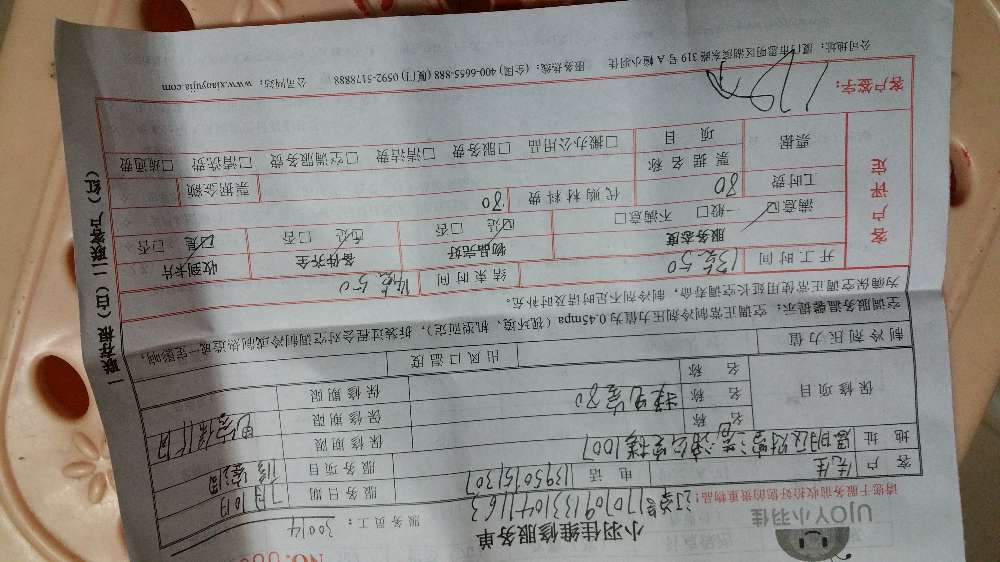 NO.
UJOY小羽佳
小羽佳维修服务单
服务员工：30014
请您于服务前收拾好您的贵重物品！
客户 先生 电话 13950151307 服务日期 7月10日
地址 1001 服务项目
名称 保修期限
保修项目 名称 80 保修期限
名称 保修期限
制冷剂压力值 出风口温度
空调服务温馨提示：空调正常制冷剂压力值为0.45mpa（视环境、机型而定），拆装过程会对空调制冷或制热造成一定影响，
为确保空调正常使用延长空调寿命，制冷剂不足时请及时补充。
客户评定
开工时间 13点50 结束时间 14点50
服务态度 物品完好 备件齐全 收到卡片
满意□ 一般□ 不满意□ □是 □否 □是 □否 □是 □否
工时费 80 代购材料费 80
票据 票据名称 票据金额
项目 □搬办公用品 □服务费 □清洁费 □空调服务费 □清洗费 □疏通费
客户签字：
公司地址：厦门市思明区湖滨东路319号A幢小羽佳 服务热线：(全国) 400-6655-888 (厦门) 0592-5178888 公司网站：www.xiaoyujia.com
一联存根（白）二联客户（红）